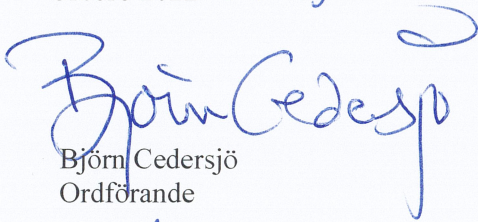 Björn Cedersjö
Björn Cedersjö
Ordförande